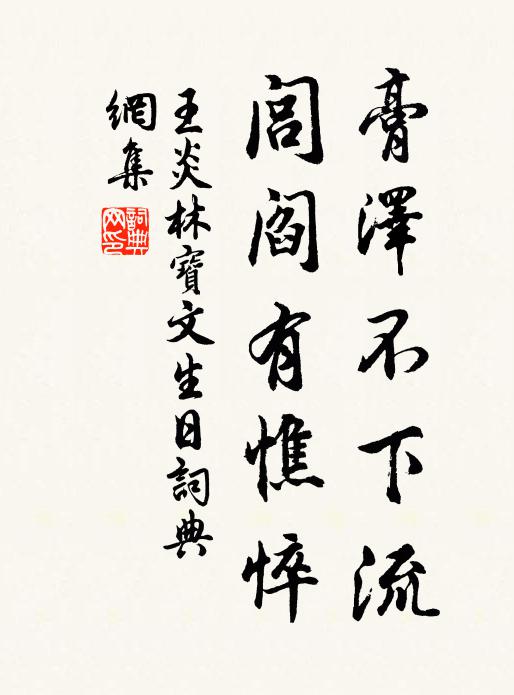 膏澤不下流
閭閻有憔悴
王炎林寶文生日詞典
網集
詞典网印